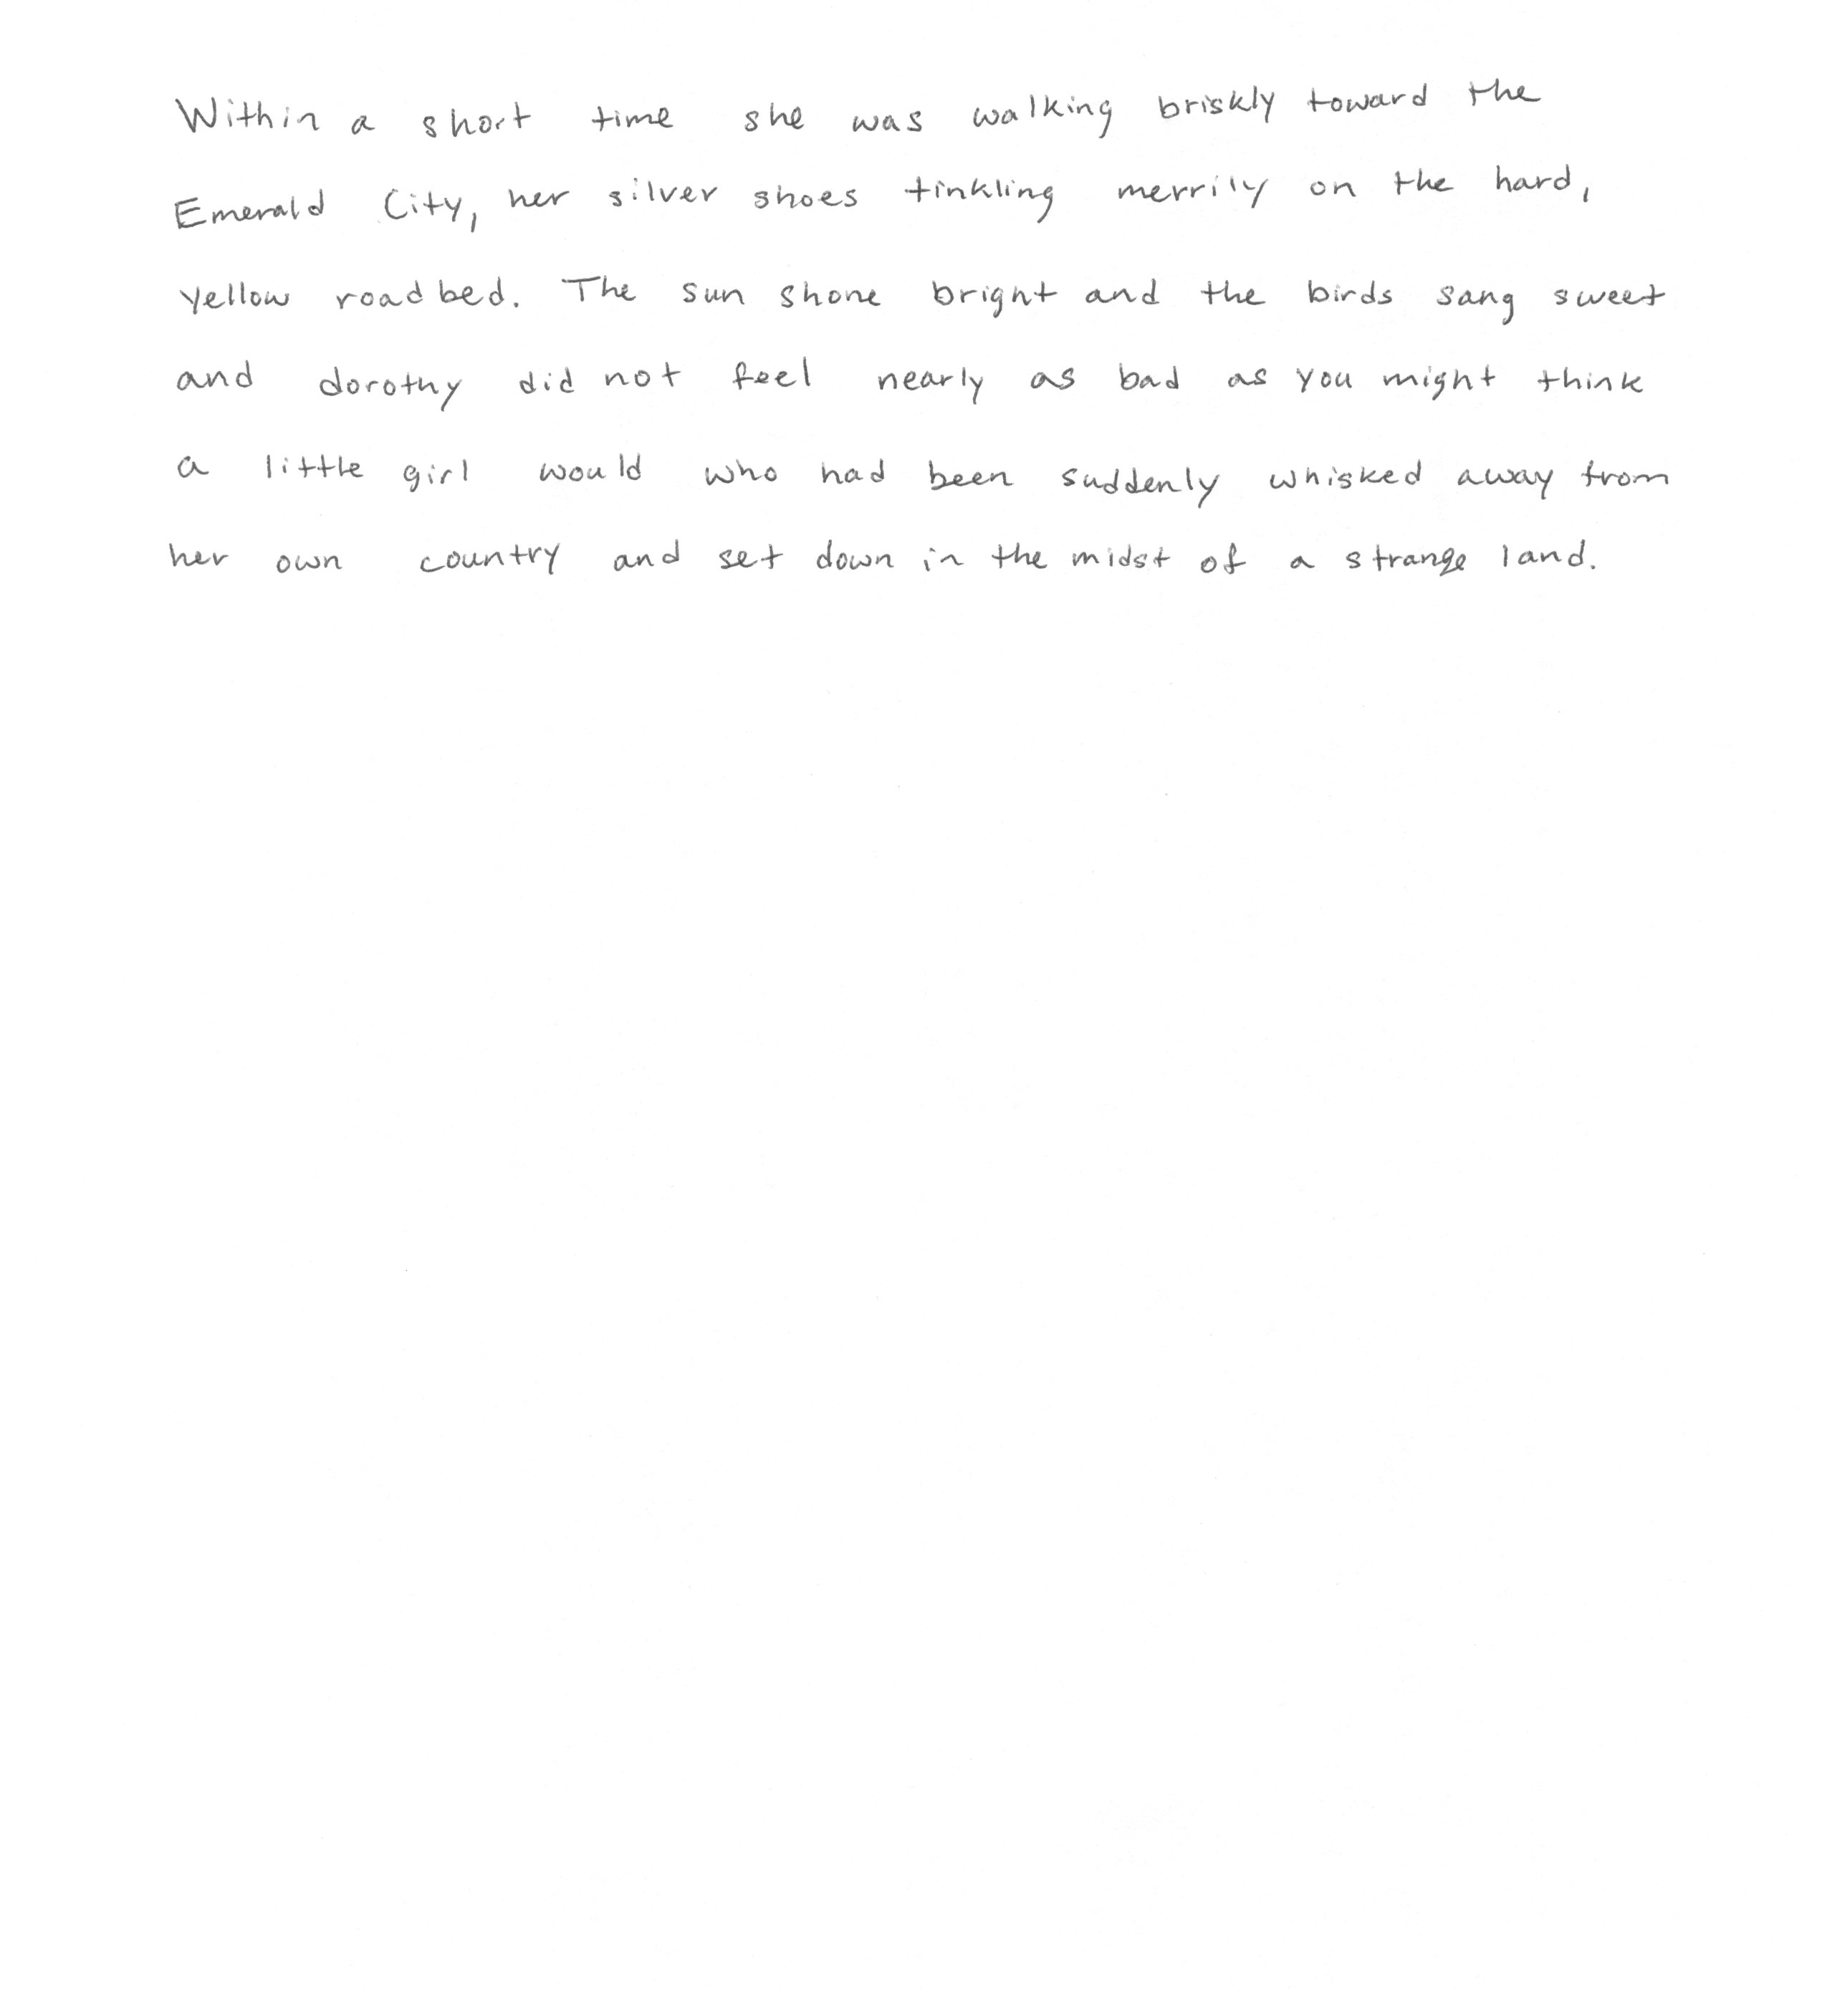 Within a short time she was walking briskly toward the
Emerald City, her silver shoes tinkling merrily on the hard,
yellow roadbed. The sun shone bright and the birds sang sweet
and dorothy did not feel nearly as bad as you might think
a little girl would who had been suddenly whisked away from
her own country and set down in the midst of a strange land.